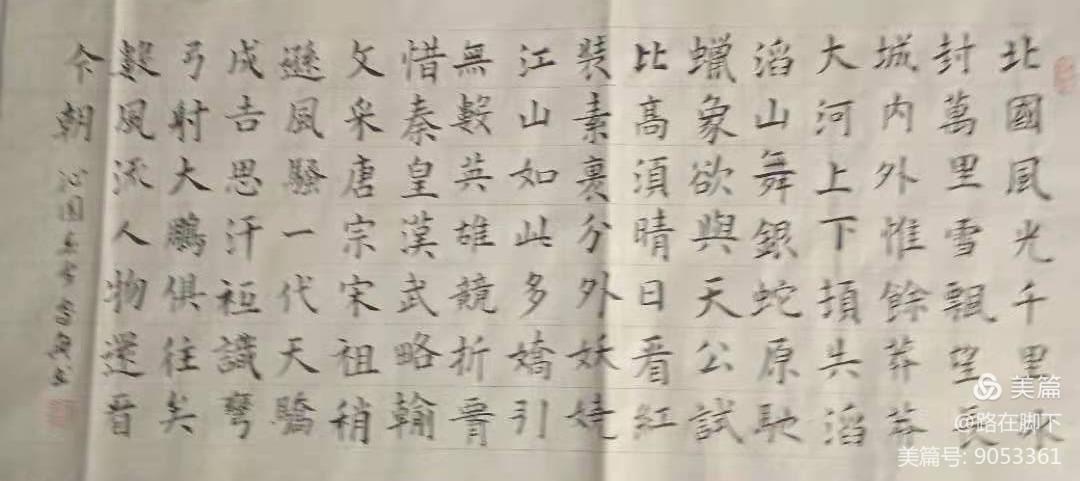 北國風光千里冰
封萬里雪飄望長
城内外惟餘莽莽
大河上下頓失滔
滔山舞銀蛇原馳
蠟象欲與天公試
比高須晴日看紅
裝素裹分外妖嬈
江山如此多嬌引
無數英雄競折
惜秦皇漢武略輸
文采唐宗宋祖稍
遜風騷一代天驕
成吉思汗衹識彎
弓射大鵰俱往矣
數風流人物還看
今朝 沁園春雪
美篇
@路在脚下
美篇号: 9053361